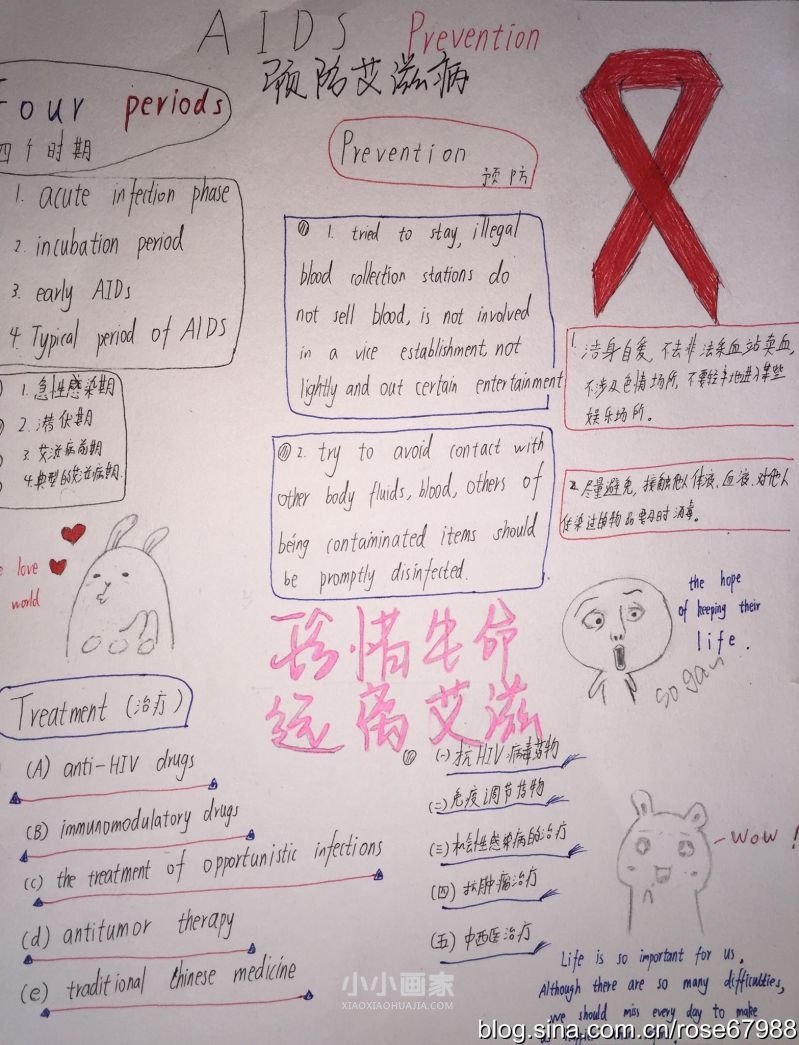 AIDS Prevention
预防艾滋病
Four periods
四个时期
1. acute infection phase
2. incubation period
3. early AIDs
4. Typical period of AIDS
1. 急性感染期
2. 潜伏期
3. 艾滋病前期
4. 典型的艾滋病期.
Prevention
预防
1. tried to stay, illegal
blood collection stations do
not sell blood, is not involved
in a vice establishment, not
lightly and out certain entertainment
2. try to avoid contact with
other body fluids, blood, others of
being contaminated items should
be promptly disinfected.
1. 洁身自爱,不去非法采血站卖血,
不涉及色情场所,不要轻率地进入某些
娱乐场所。
2. 尽量避免,接触他人体液、血液,对他人
传染过的物品要及时消毒。
love
world
珍惜生命
远离艾滋
the hope
of keeping their
life.
so gan
Treatment (治疗)
(A) anti-HIV drugs
(B) immunomodulatory drugs
(c) the treatment of opportunistic infections
(d) antitumor therapy
(e) traditional Chinese medicine
(一) 抗HIV病毒药物
(二) 免疫调节药物
(三) 机会性感染病的治疗
(四) 抗肿瘤治疗
(五) 中西医治疗
WOW!
Life is so important for us.
Although there are so many difficulties,
we should miss every day to make
小小画家
XIAOXIAOHUAJIA.COM
blog.sina.com.cn/rose67988